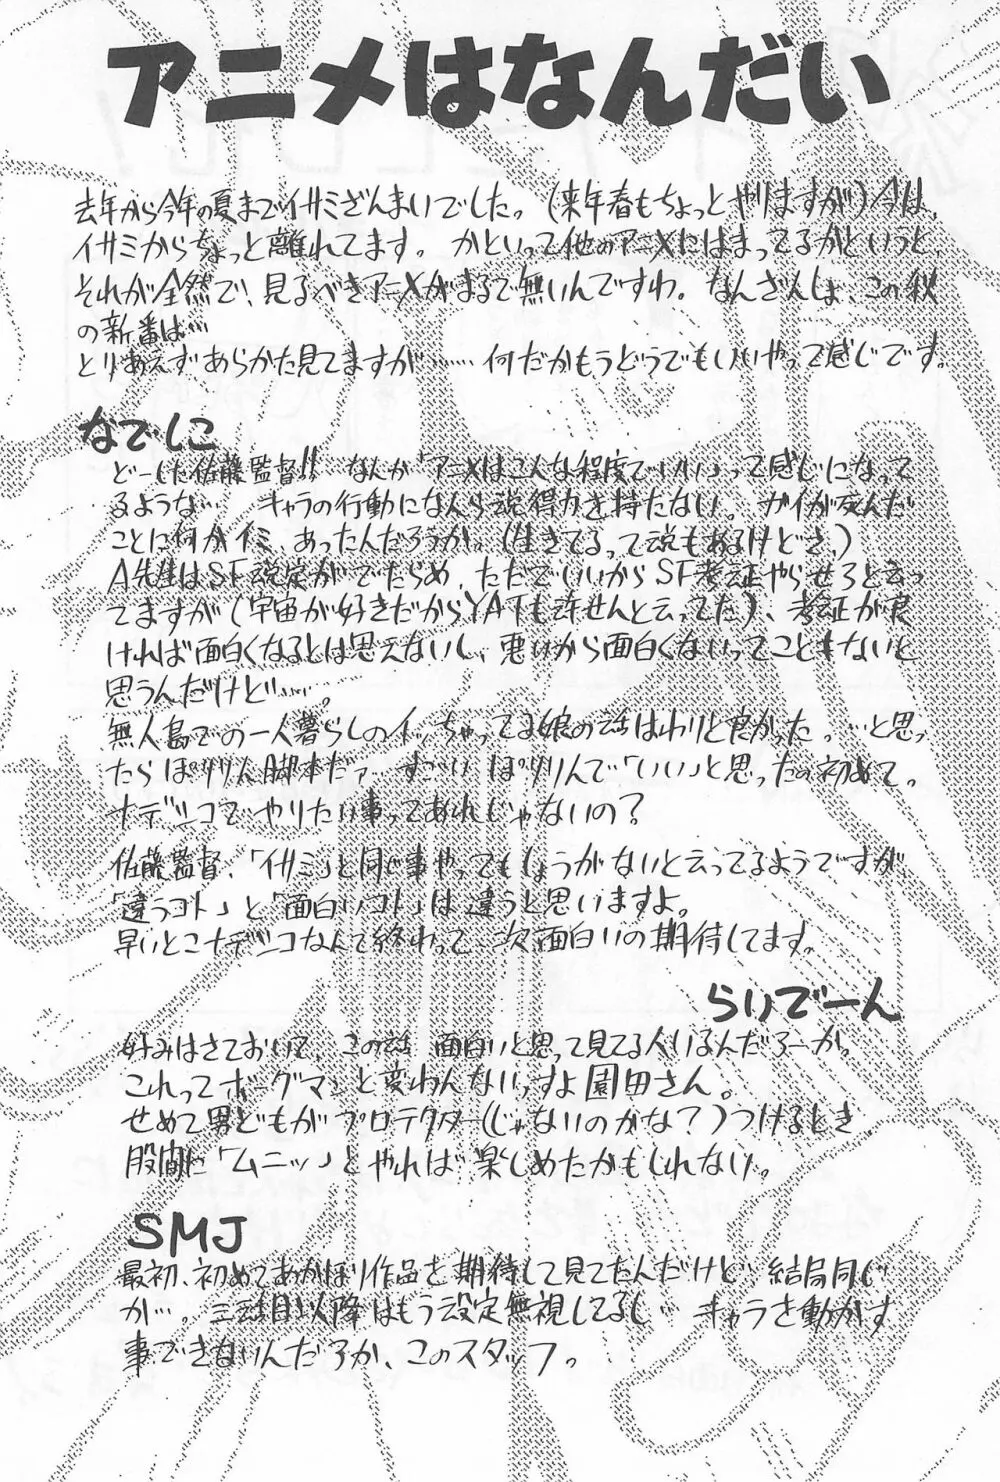 アニメはなんだい
去年から今年の夏までイサミざんまいでした。(来年春もちょっとやりますが)今は、
イサミからちょっと離れてます。かといって他のアニメにはまってるかというと、
それが全然で、見るべきアニメがまるで無いんですわ。なんざんしょ、この秋
の新番は…
とりあえずあらかた見てますが……何だかもうどうでもいいやって感じです。
なでしこ
どーした佐藤監督!! なんか「アニメはこんな程度でいい」って感じになって
るような… キャラの行動になんら説得力を持たない。ガイが死んだ
ことに何かイミ、あったんだろうか。(生きてるって説もあるけどさ。)
A先生はSF設定がでたらめ、ただでいいからSF考証やらせろと云っ
てますが(宇宙が好きだからYATも許せんと云ってた)、考証が良
ければ面白くなるとは思えないし、悪いから面白くないってこともないと
思うんだけど……。
無人島での一人暮らしのイッちゃってる娘の話はわりと良かった。…と思っ
たらぽりりん脚本だァ すごいぽりりんで「いい」と思ったの初めて。
ナデシコでやりたい事ってあれじゃないの?
佐藤監督、「イサミ」と同じ事やってもしょうがないと云ってるようですが、
「違うコト」と「面白いコト」は違うと思いますよ。
早いとこナデシコなんて終わって、次、面白いの期待してます。
らいでーん
好みはさておいて、この話 面白いと思って見てる人いるんだろーか。
これってボーグマンと変わんないっすよ園田さん。
せめて男どもがプロテクター(じゃないのかな?)つけるとき
股間に「ムニッ」とやれば楽しめたかもしれない。
SMJ
最初、初めてあかほり作品を期待して見てたんだけど 結局同じ
か…。三話目以降はもう設定無視してるし… キャラを動かす
事できないんだろか、このスタッフ。